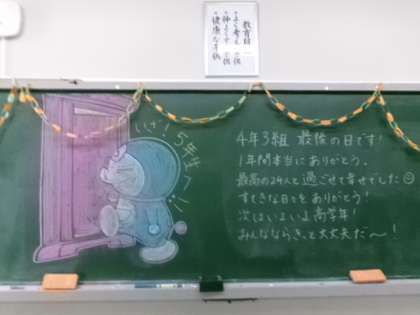 教育目標
・よく考える子供
・仲よくする子供
・健康な子供
いざ！5年生へ！！
4年3組 最後の日です！
1年間本当にありがとう。
最高の24人と過ごせて幸せでした
すてきな日々をありがとう！
次はいよいよ高学年！
みんなならきっと大丈夫だ〜！